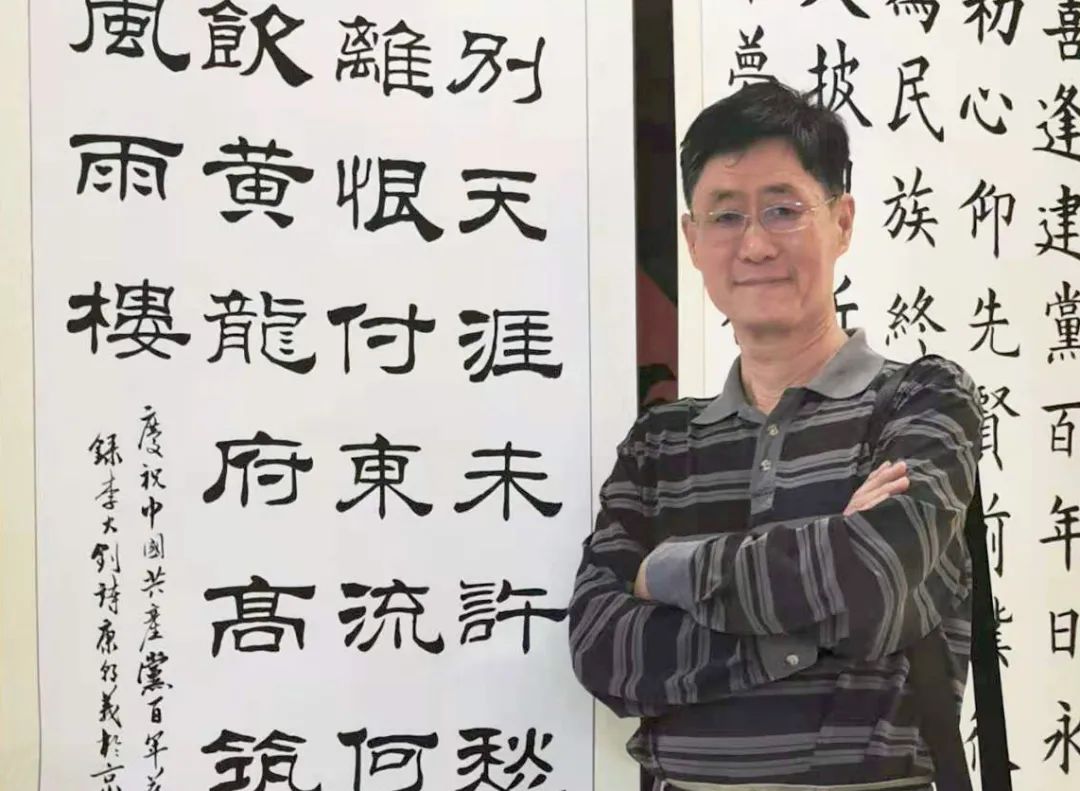 喜逢建黨百年日永
初心仰先賢前
為民族終
披
夢
別天涯未許愁
離恨付東流何
飲黃龍府高筑
風雨樓
慶祝中國共產黨百年
錄李大釗詩康義於京